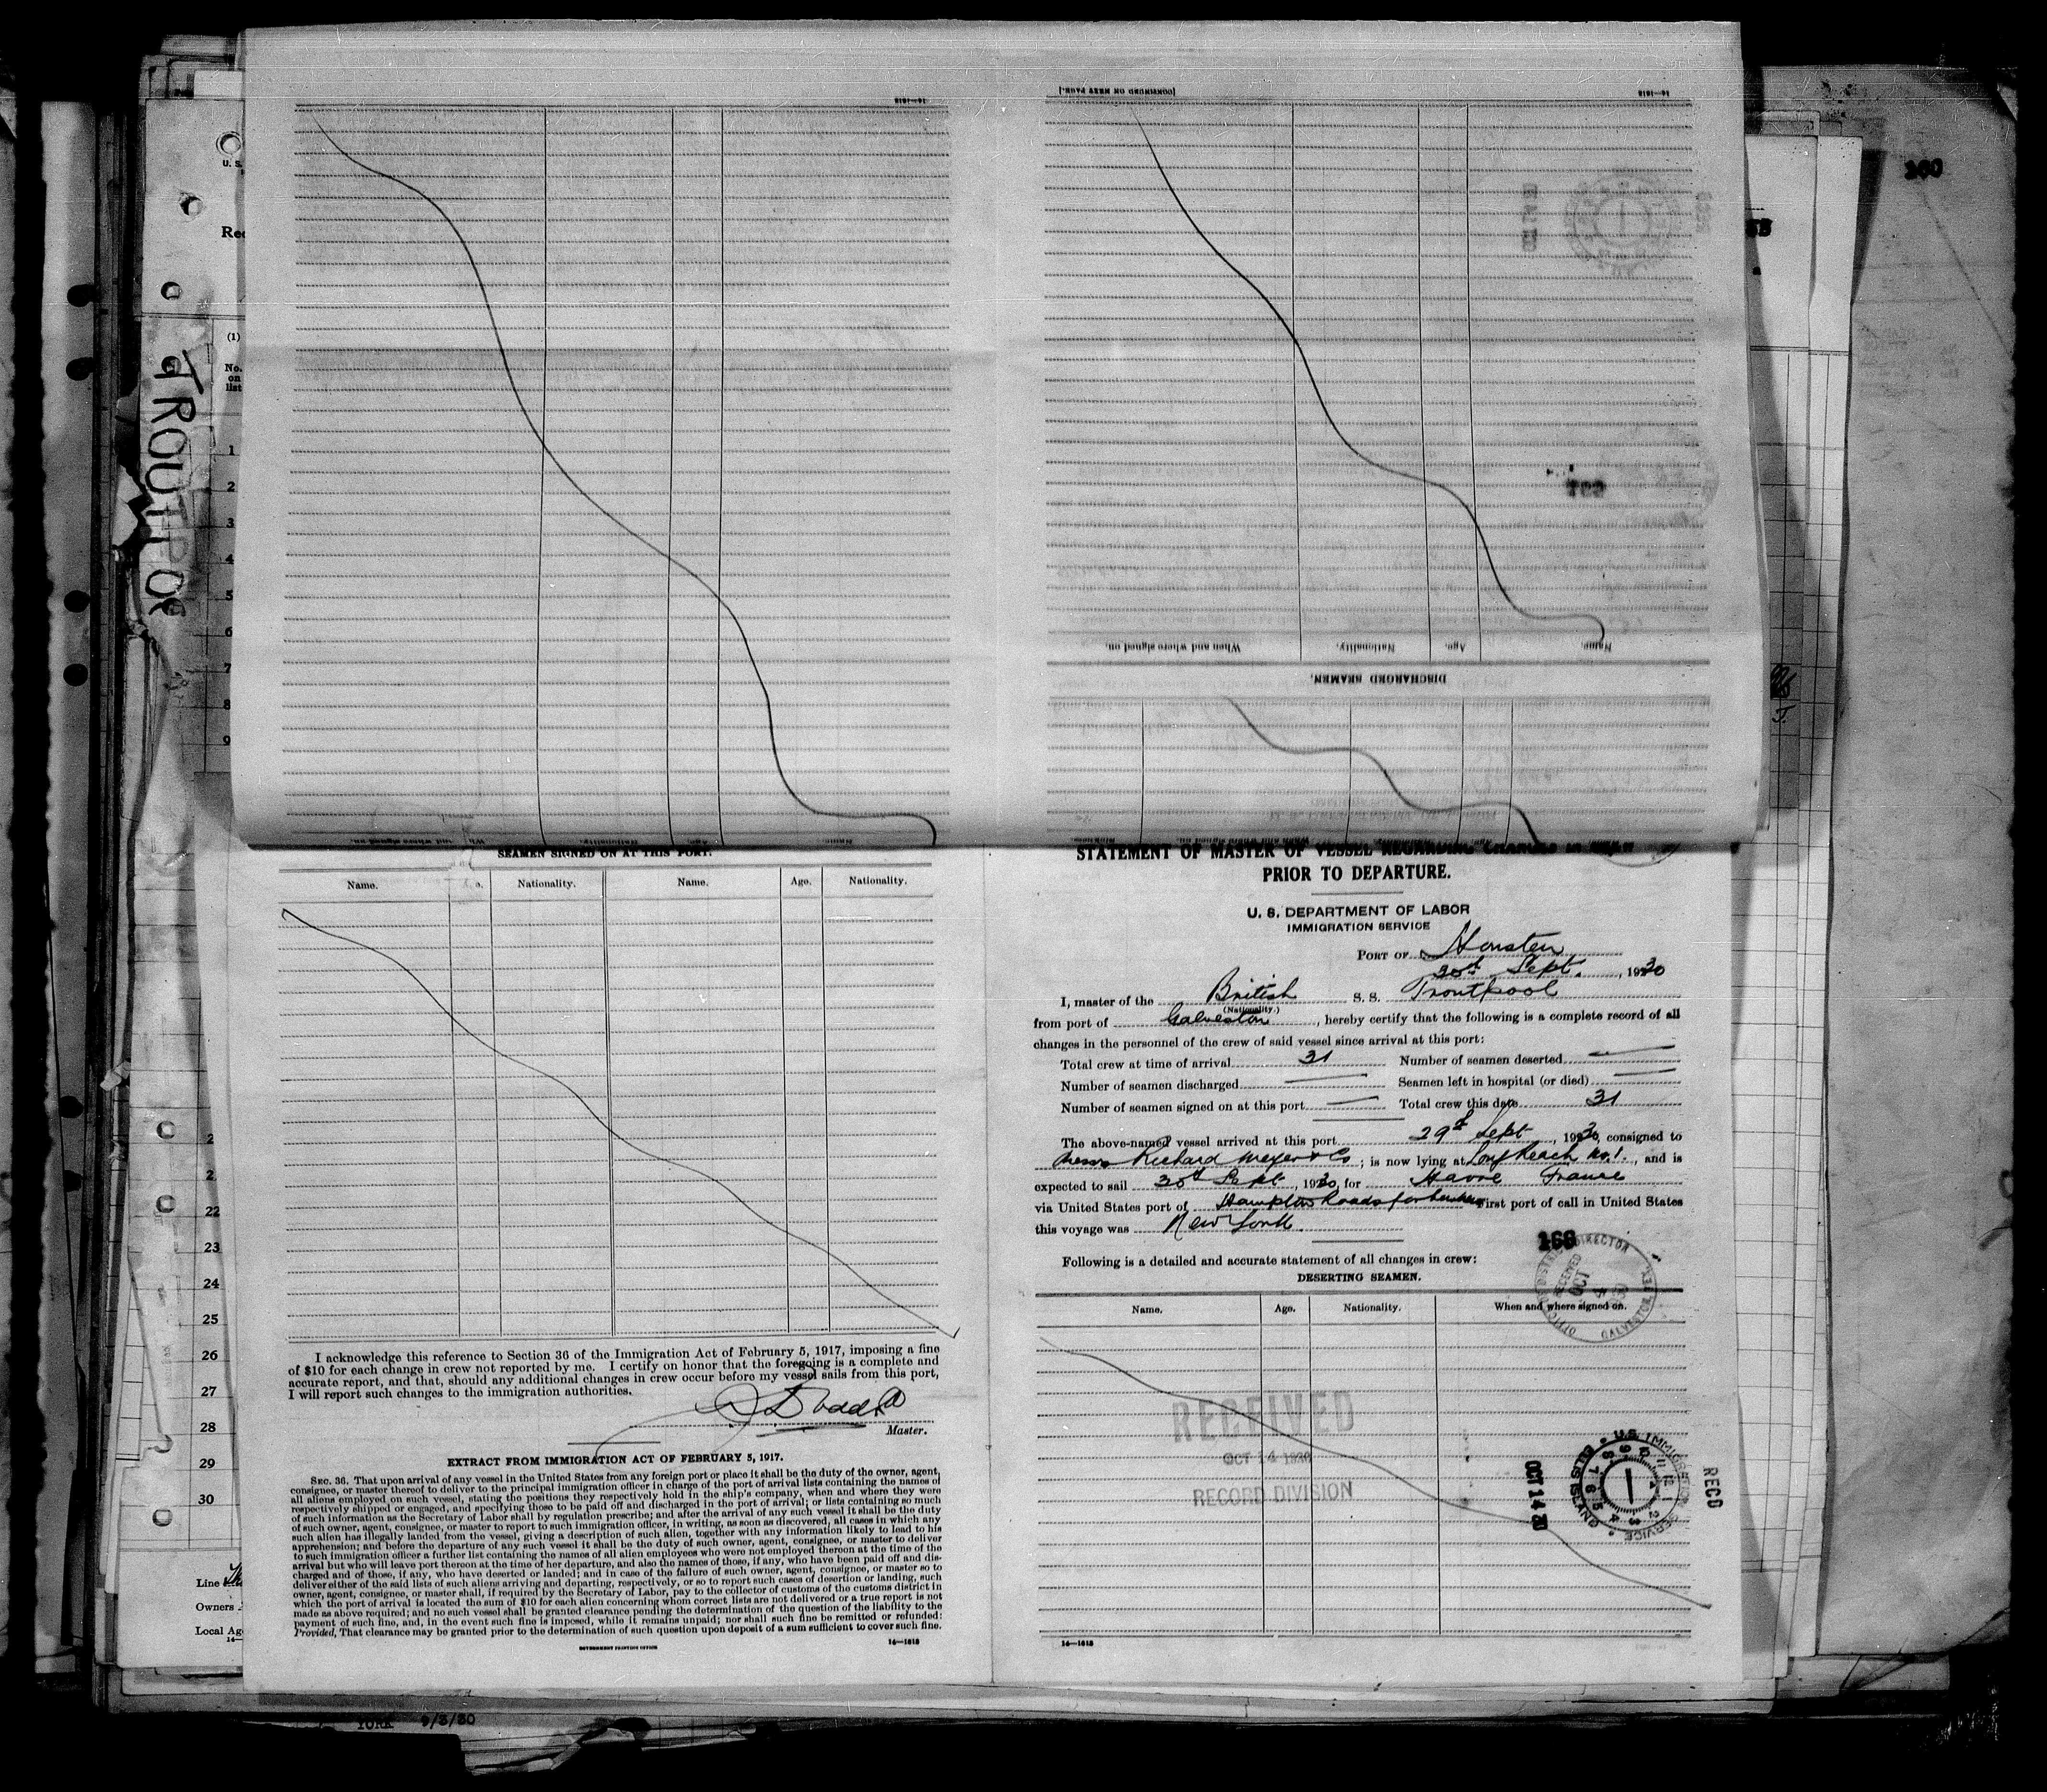 [CONTINUED ON NEXT PAGE.]
14—1618
14—1618
160
TROUTPOO
U. S.
Rec
(1)
No. on list
1
2
3
4
5
6
7
8
9
When and where signed on.
Nationality.
Age.
Name.
DISCHARGED SEAMEN.
Name.
Age.
Nationality.
When and where signed on.
SEAMEN SIGNED ON AT THIS PORT.
Name.
Nationality.
Name.
Age.
Nationality.
22
23
24
25
26
27
28
29
30
I acknowledge this reference to Section 36 of the Immigration Act of February 5, 1917, imposing a fine
of $10 for each change in crew not reported by me. I certify on honor that the foregoing is a complete and
accurate report, and that, should any additional changes in crew occur before my vessel sails from this port,
I will report such changes to the immigration authorities.
Master.
EXTRACT FROM IMMIGRATION ACT OF FEBRUARY 5, 1917.
SEC. 36. That upon arrival of any vessel in the United States from any foreign port or place it shall be the duty of the owner, agent,
consignee, or master thereof to deliver to the principal immigration officer in charge of the port of arrival lists containing the names of
all aliens employed on such vessel, stating the positions they respectively hold in the ship's company, when and where they were
respectively shipped or engaged, and specifying those to be paid off and discharged in the port of arrival; or lists containing so much
of such information as the Secretary of Labor shall by regulation prescribe; and after the arrival of any such vessel it shall be the duty
of such owner, agent, consignee, or master to report to such immigration officer, in writing, as soon as discovered, all cases in which any
such alien has illegally landed from the vessel, giving a description of such alien, together with any information likely to lead to his
apprehension; and before the departure of any such vessel it shall be the duty of such owner, agent, consignee, or master to deliver
to such immigration officer a further list containing the names of all alien employees who were not employed thereon at the time of the
arrival but who will leave port thereon at the time of her departure, and also the names of those, if any, who have been paid off and dis-
charged and of those, if any, who have deserted or landed; and in case of the failure of such owner, agent, consignee, or master so to
deliver either of the said lists of such aliens arriving and departing, respectively, or so to report such cases of desertion or landing, such
owner, agent, consignee, or master shall, if required by the Secretary of Labor, pay to the collector of customs of the customs district in
which the port of arrival is located the sum of $10 for each alien concerning whom correct lists are not delivered or a true report is not
made as above required; and no such vessel shall be granted clearance pending the determination of the question of the liability to the
payment of such fine, and, in the event such fine is imposed, while it remains unpaid; nor shall such fine be remitted or refunded:
Provided, That clearance may be granted prior to the determination of such question upon deposit of a sum sufficient to cover such fine.
GOVERNMENT PRINTING OFFICE
14—1618
Line
Owners
Local Age
YORK 9/3/30
STATEMENT OF MASTER OF VESSEL REGARDING CHANGES IN CREW
PRIOR TO DEPARTURE.
U. S. DEPARTMENT OF LABOR
IMMIGRATION SERVICE
PORT OF Houston
30th Sept. , 1930
I, master of the British S. S. Troutpool
(Nationality.)
from port of Galveston , hereby certify that the following is a complete record of all
changes in the personnel of the crew of said vessel since arrival at this port:
Total crew at time of arrival 31 Number of seamen deserted —
Number of seamen discharged — Seamen left in hospital (or died) —
Number of seamen signed on at this port — Total crew this date 31
The above-named vessel arrived at this port 29th Sept , 1930, consigned to
Messrs Richard Meyer & Co ; is now lying at Long Reach No. 1. , and is
expected to sail 30th Sept , 1930, for Havre France
via United States port of Hampton Roads for bunkers First port of call in United States
this voyage was New York.
168
Following is a detailed and accurate statement of all changes in crew:
DESERTING SEAMEN.
OFFICE DISTRICT DIRECTOR
RECEIVED
OCT
GALVESTON, TEX.
Name.
Age.
Nationality.
When and where signed on.
RECEIVED
OCT 14 1930
RECORD DIVISION
U.S. IMMIGRATION SERVICE
ELLIS ISLAND
OCT 14 30
RECD
14—1618